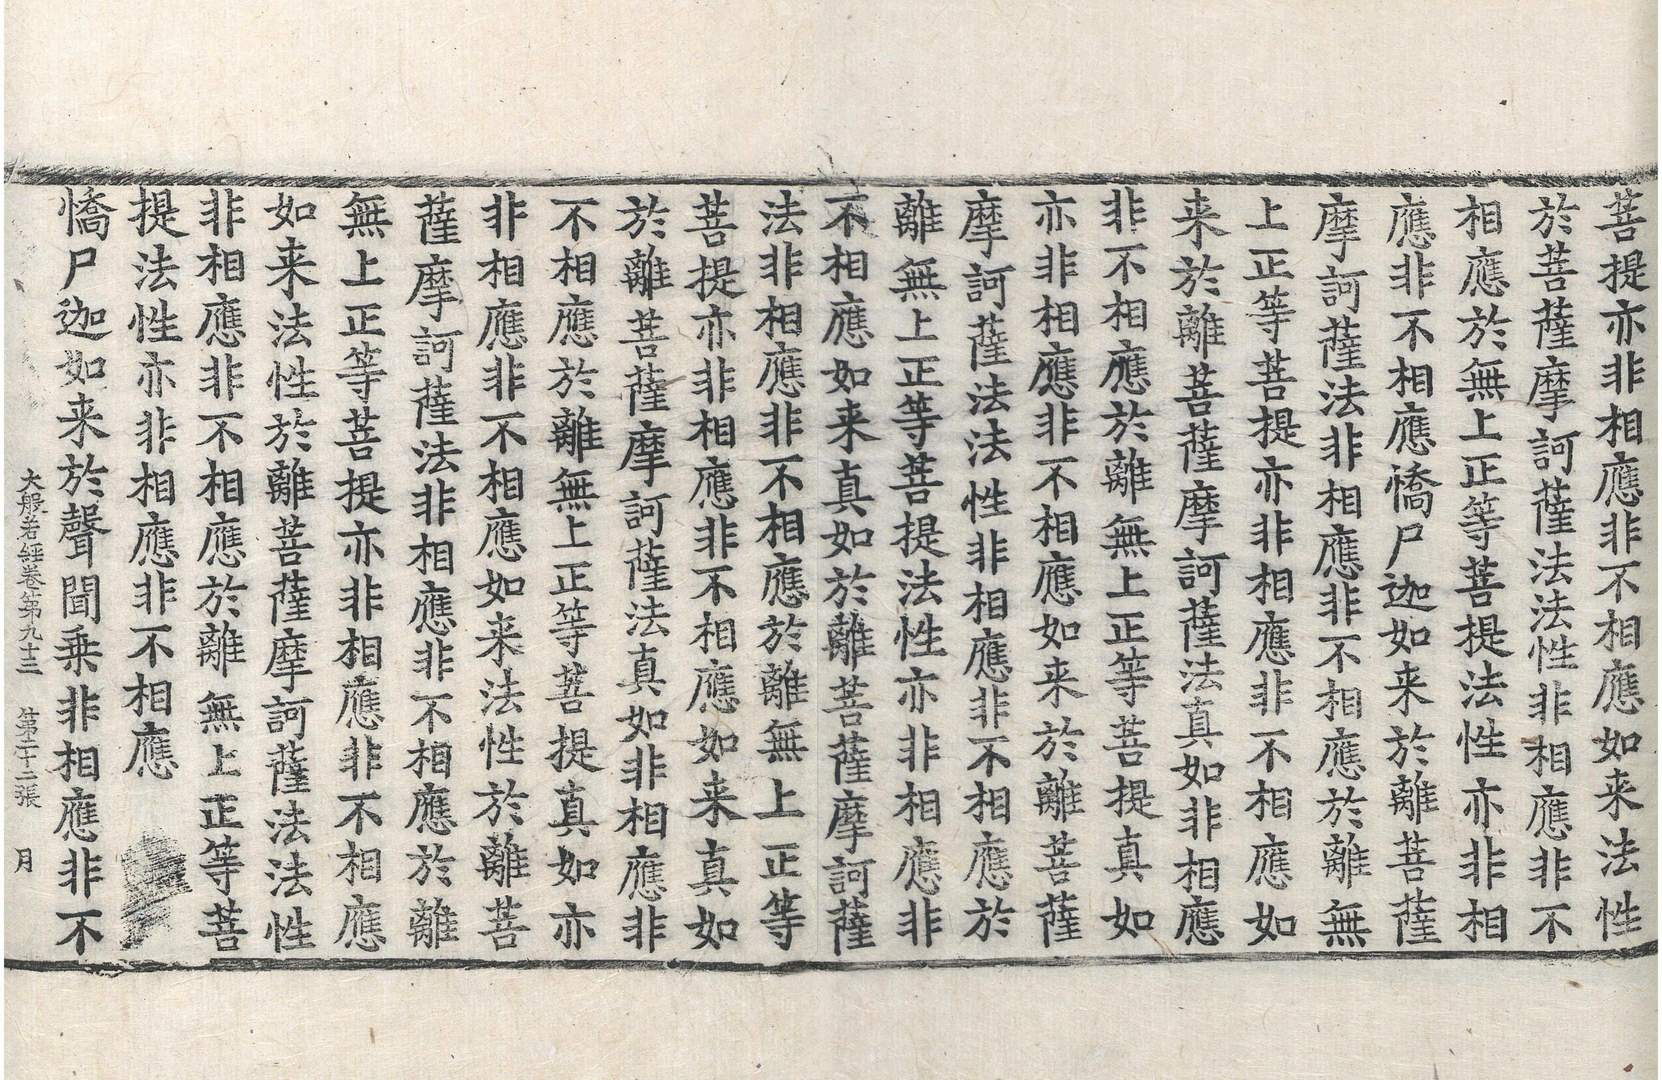 菩提亦非相應非不相應如来法性
於菩薩摩訶薩法法性非相應非不
相應於無上正等菩提法性亦非相
應非不相應憍尸迦如来於離菩薩
摩訶薩法非相應非不相應於離無
上正等菩提亦非相應非不相應如
来於離菩薩摩訶薩法真如非相應
非不相應於離無上正等菩提真如
亦非相應非不相應如来於離菩薩
摩訶薩法法性非相應非不相應於
離無上正等菩提法性亦非相應非
不相應如来真如於離菩薩摩訶薩
法非相應非不相應於離無上正等
菩提亦非相應非不相應如来真如
於離菩薩摩訶薩法真如非相應非
不相應於離無上正等菩提真如亦
非相應非不相應如来法性於離菩
薩摩訶薩法非相應非不相應於離
無上正等菩提亦非相應非不相應
如来法性於離菩薩摩訶薩法法性
非相應非不相應於離無上正等菩
提法性亦非相應非不相應
憍尸迦如来於聲聞乗非相應非不
大般若經卷第九十三 第二十二張 月